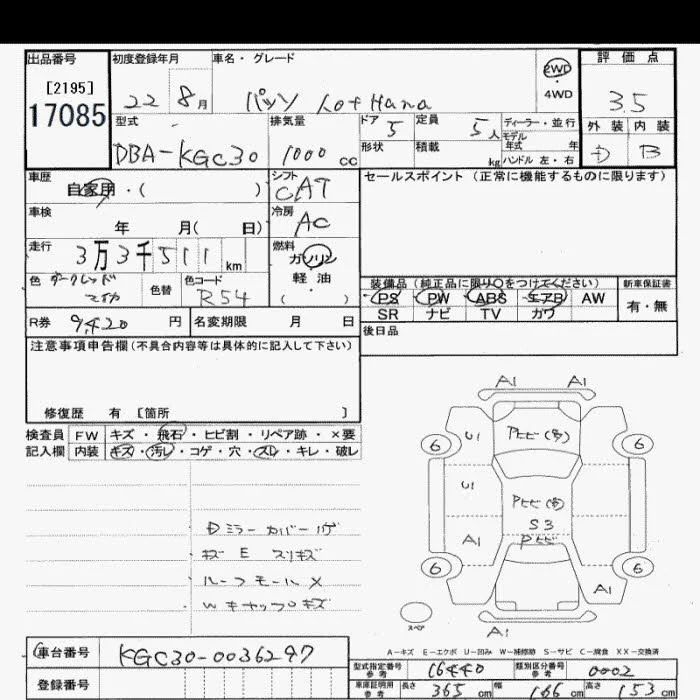 出品番号 初度登録年月 車名・グレード 評価点
[2195]
17085
22 8月 パッソ 1.0+Hana 2WD・4WD 3.5
型式 排気量 ドア 5 定員 5人 ディーラー・並行 外装 内装
DBA-KGC30 1000cc 形状 積載 kg モデル年式 年 D B
ハンドル 左・右
車歴 自家用・( ) シフト CAT セールスポイント (正常に機能するものに限ります)
車検 年 月( 日) 冷房 AC
走行 3万3千511km 燃料 ガソリン・軽油・( )
色 ダークレッドマイカ 色替 色コード R54 装備品(純正品に限り○をつけてください) 新車保証書
PS PW ABS エアB AW 有・無
SR ナビ TV カワ
R券 9,420円 名変期限 月 日 後日品
注意事項申告欄(不具合内容等は具体的に記入して下さい)
修復歴 有 [箇所 ]
検査員 FW キズ・飛石・ヒビ割・リペア跡・×要
記入欄 内装 キズ・汚レ・コゲ・穴・スレ・キレ・破レ
Dミラーカバーハゲ
キズ E スリキズ
ルーフモール×
Wキャップ○キズ
A1 A1
U1 Pヒビ(多)
6 6
U1
Pヒビ(多)
S3
A1 Pヒビ
6 6
A1
スペア
A1
A-キズ E-エクボ U-凹み W-補修跡 S-サビ C-腐食 XX-交換済
車台番号 KGC30-0036297
登録番号
型式指定番号参考 16440 類別区分番号参考 0002
車庫証明用参考 長さ 365cm 幅 166cm 高さ 153cm